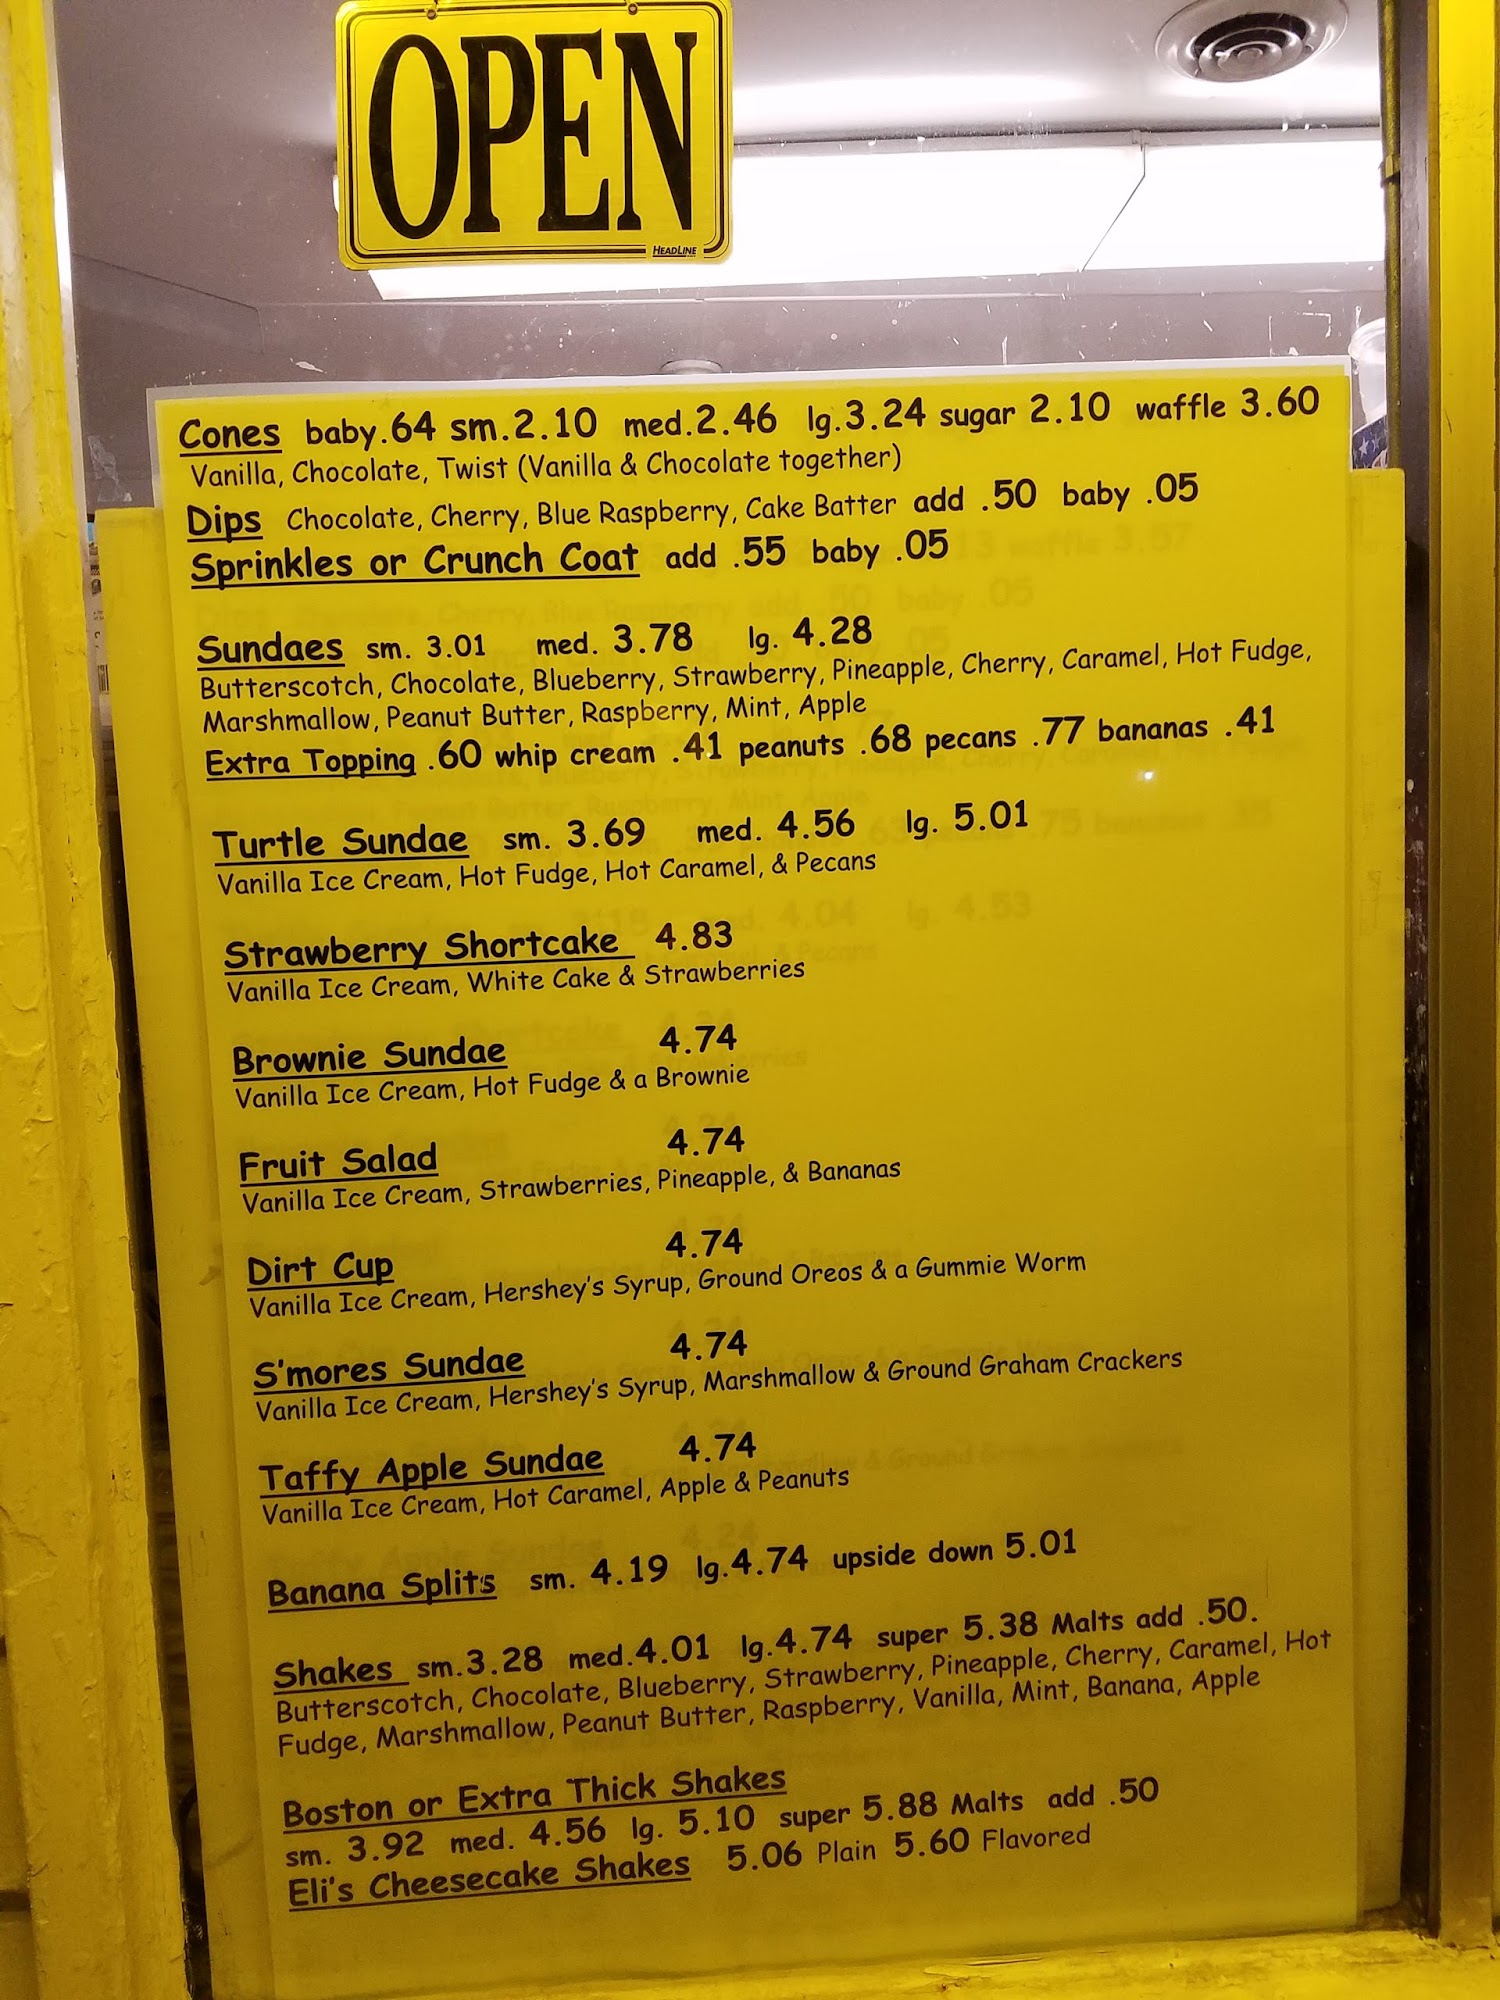 OPEN
HEADLINE
Cones baby.64 sm.2.10 med.2.46 lg.3.24 sugar 2.10 waffle 3.60
Vanilla, Chocolate, Twist (Vanilla & Chocolate together)
Dips Chocolate, Cherry, Blue Raspberry, Cake Batter add .50 baby .05
Sprinkles or Crunch Coat add .55 baby .05
Sundaes sm. 3.01 med. 3.78 lg. 4.28
Butterscotch, Chocolate, Blueberry, Strawberry, Pineapple, Cherry, Caramel, Hot Fudge,
Marshmallow, Peanut Butter, Raspberry, Mint, Apple
Extra Topping .60 whip cream .41 peanuts .68 pecans .77 bananas .41
Turtle Sundae sm. 3.69 med. 4.56 lg. 5.01
Vanilla Ice Cream, Hot Fudge, Hot Caramel, & Pecans
Strawberry Shortcake 4.83
Vanilla Ice Cream, White Cake & Strawberries
Brownie Sundae 4.74
Vanilla Ice Cream, Hot Fudge & a Brownie
Fruit Salad 4.74
Vanilla Ice Cream, Strawberries, Pineapple, & Bananas
Dirt Cup 4.74
Vanilla Ice Cream, Hershey's Syrup, Ground Oreos & a Gummie Worm
S'mores Sundae 4.74
Vanilla Ice Cream, Hershey's Syrup, Marshmallow & Ground Graham Crackers
Taffy Apple Sundae 4.74
Vanilla Ice Cream, Hot Caramel, Apple & Peanuts
Banana Splits sm. 4.19 lg.4.74 upside down 5.01
Shakes sm.3.28 med.4.01 lg.4.74 super 5.38 Malts add .50.
Butterscotch, Chocolate, Blueberry, Strawberry, Pineapple, Cherry, Caramel, Hot
Fudge, Marshmallow, Peanut Butter, Raspberry, Vanilla, Mint, Banana, Apple
Boston or Extra Thick Shakes
sm. 3.92 med. 4.56 lg. 5.10 super 5.88 Malts add .50
Eli's Cheesecake Shakes 5.06 Plain 5.60 Flavored